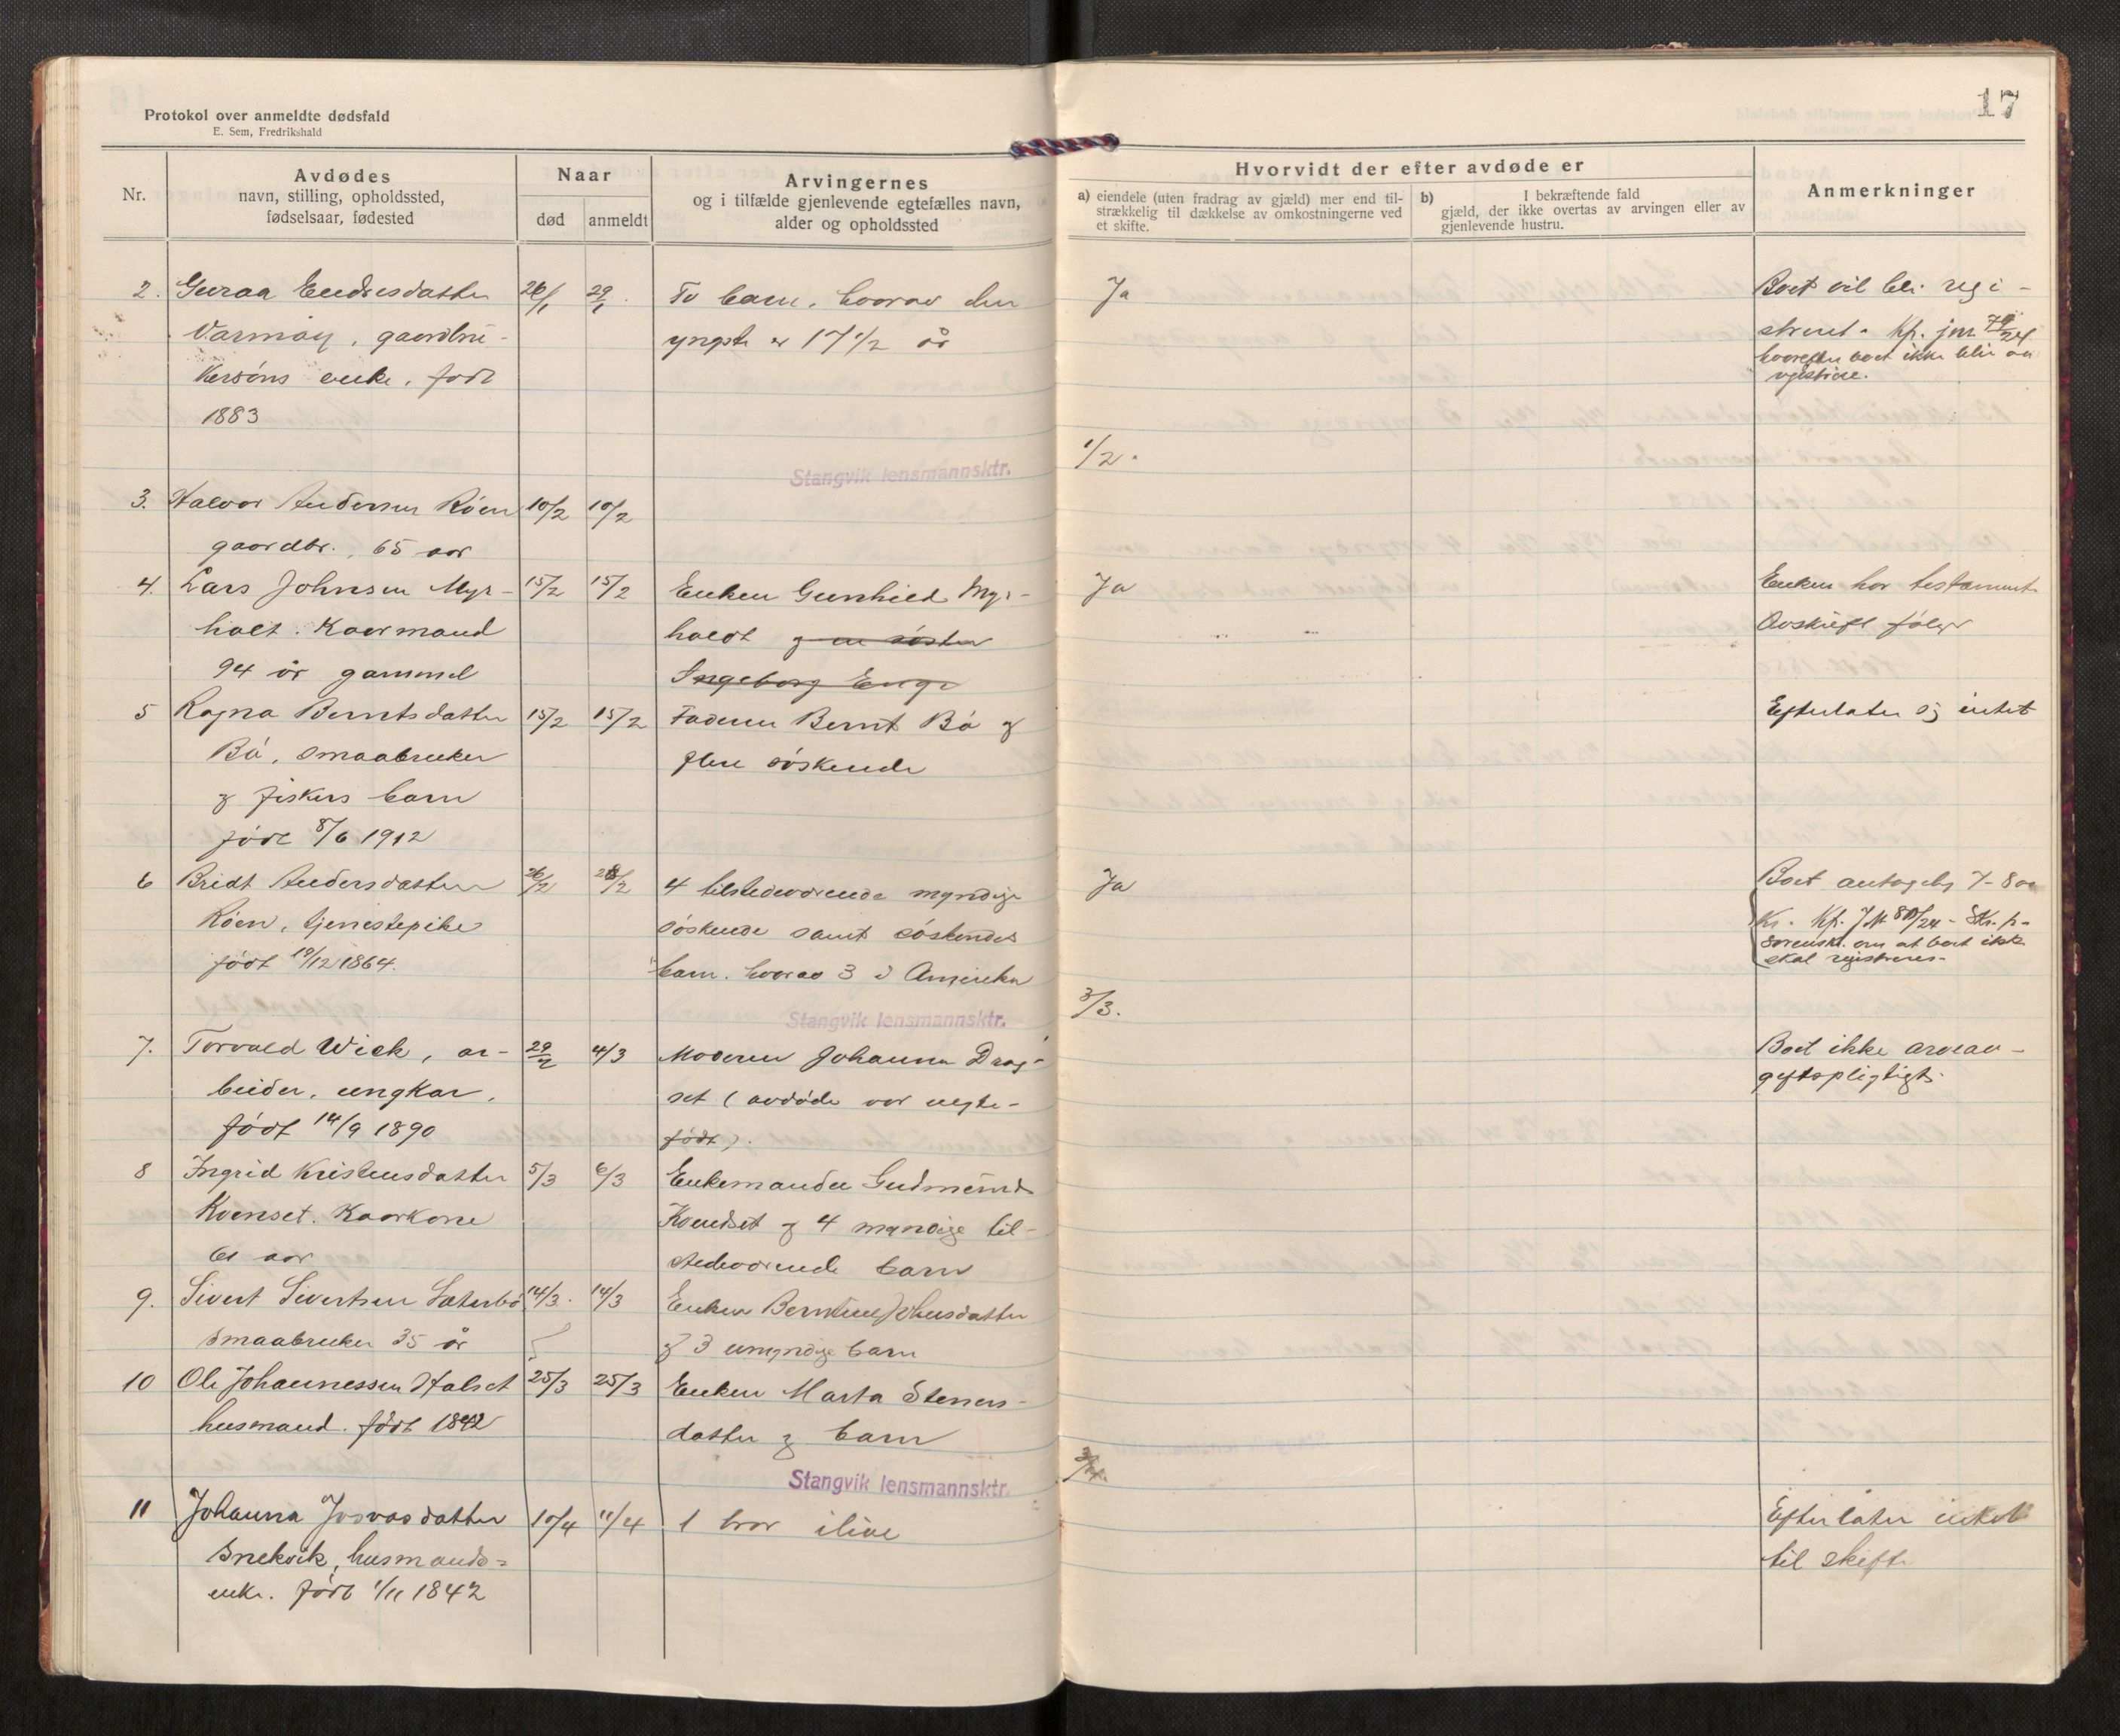 Protokol over anmeldte dødsfald
E. Sem, Fredrikshald
17
Nr.
Avdødes
navn, stilling, opholdssted,
fødselsaar, fødested
Naar
død
anmeldt
Arvingernes
og i tilfælde gjenlevende egtefælles navn,
alder og opholdssted
Hvorvidt der efter avdøde er
a) eiendele (uten fradrag av gjæld) mer end til-
strækkelig til dækkelse av omkostningerne ved
et skifte.
b) I bekræftende fald
gjæld, der ikke overtas av arvingen eller av
gjenlevende hustru.
Anmerkninger
2. Guraa Endresdatter 26/1 29/1. To barn, hvorav den Ja Boet vil bli regi-
Varmøy, gaardbru- yngste er 17 1/2 år streret. Kp. jnr 79/24
kersøns enke, født hvorefter boet ikke blir
1883
Stangvik lensmannsktr. 1/2.
3. Halvor Andersen Røen 10/2 10/2
gaardbr., 65 aar
4. Lars Johnsen Myr- 15/2 15/2 Enken Gunhild Myr- Ja Enken har testament.
holt. Kaarmand holdt og en søster Avskrift følger
94 år gammel Ingeborg Enge
5 Ragna Berntsdatter 15/2 15/2 Faderen Bernt Bø og Efterlater sig intet
Bø, smaabruker flere søskende
og fiskers barn
født 8/6 1912
6 Bridt Andersdatter 26/2 28/2 4 tilstedeværende myndige Ja Boet antagelig 7-800
Røen, tjenestepike søskende samt søskendes Kr. Kp. J.N 80/24 - Skr. p-
født 10/12 1864. barn. hvorav 3 i Amerika sorenskr. om at boet ikke
skal registreres.
Stangvik lensmannsktr. 3/3.
7. Torvald Wiek, ar- 29/2 4/3 Moderen Johanna Drag- Boet ikke arveav-
beider, ungkar, set (avdøde var uegte- giftspligtigt.
født 14/9 1890 født).
8 Ingrid Kristensdatter 5/3 6/3 Enkemanden Gudmund
Kvenset. Kaarkone Kvendset og 4 myndige til-
61 aar stedeværende barn
9. Sivert Sivertsen Sæterbø 14/3. 14/3 Enken Berntine Johnsdatter
smaabruker 35 år og 3 umyndige barn
10 Ole Johannessen Halset 25/3 25/3 Enken Marta Steners-
husmand. født 1842 datter og barn
Stangvik lensmannsktr.
11 Johanna Josvasdatter 10/4 11/4 1 bror ilive Efterlater intet
Snekvik, husmands= til skifte
enke. født 1/11 1842